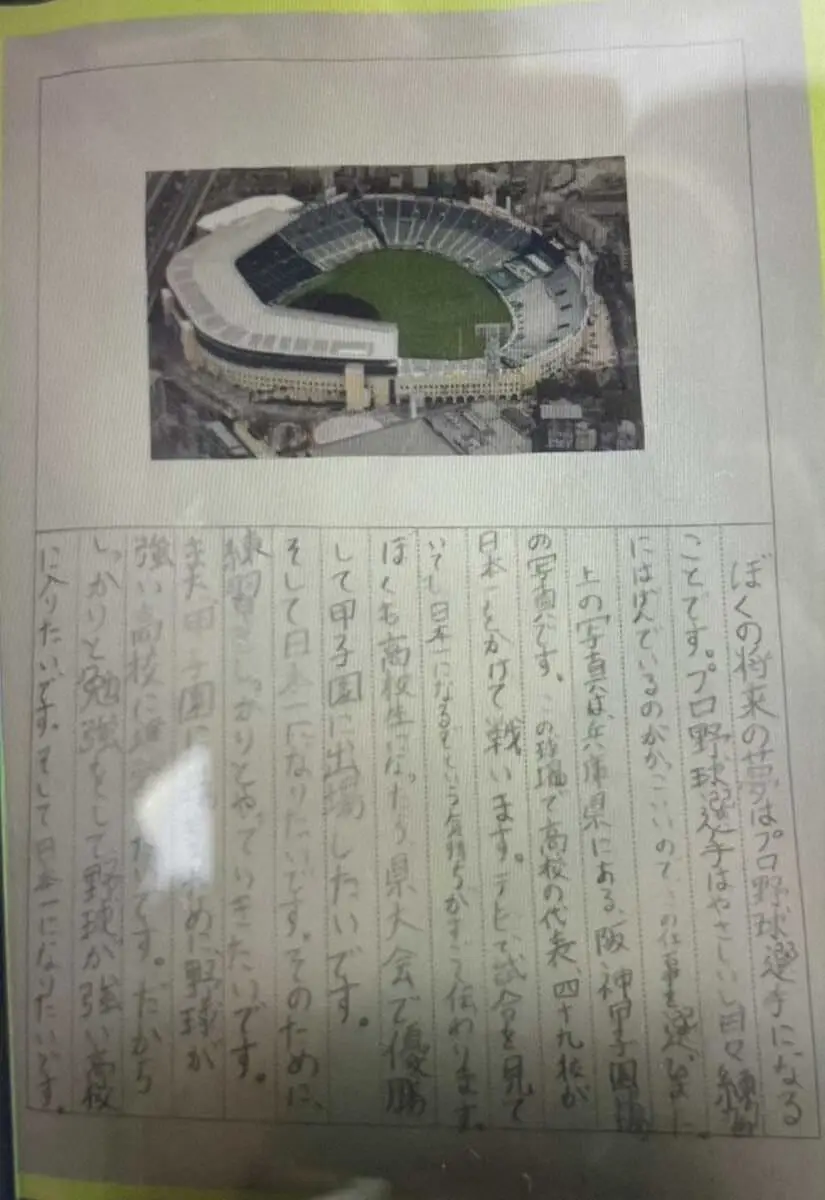 ぼくの将来の夢はプロ野球選手になる
ことです。プロ野球選手はやさしいし日々練習
にはげんでいるのがかっこいいので、この仕事を選びました。
上の写真は、兵庫県にある、阪神甲子園球場
の写真です。この球場で高校の代表、四十九校が
日本一をかけて戦います。テレビで試合を見て
いても日本一になるぞという気持ちがすごく伝わります。
ぼくも高校生になったら、県大会で優勝
して甲子園に出場したいです。
そして日本一になりたいです。そのために、
練習をしっかりとやっていきたいです。
また甲子園に ために野球が
強い高校に たいです。だから
しっかりと勉強をして野球が強い高校
に入りたいです。そして日本一になりたいです。